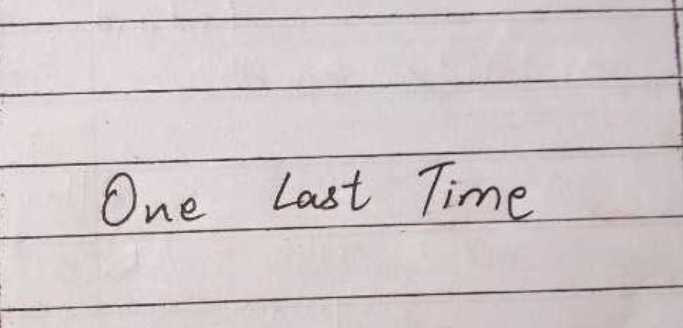 One Last Time